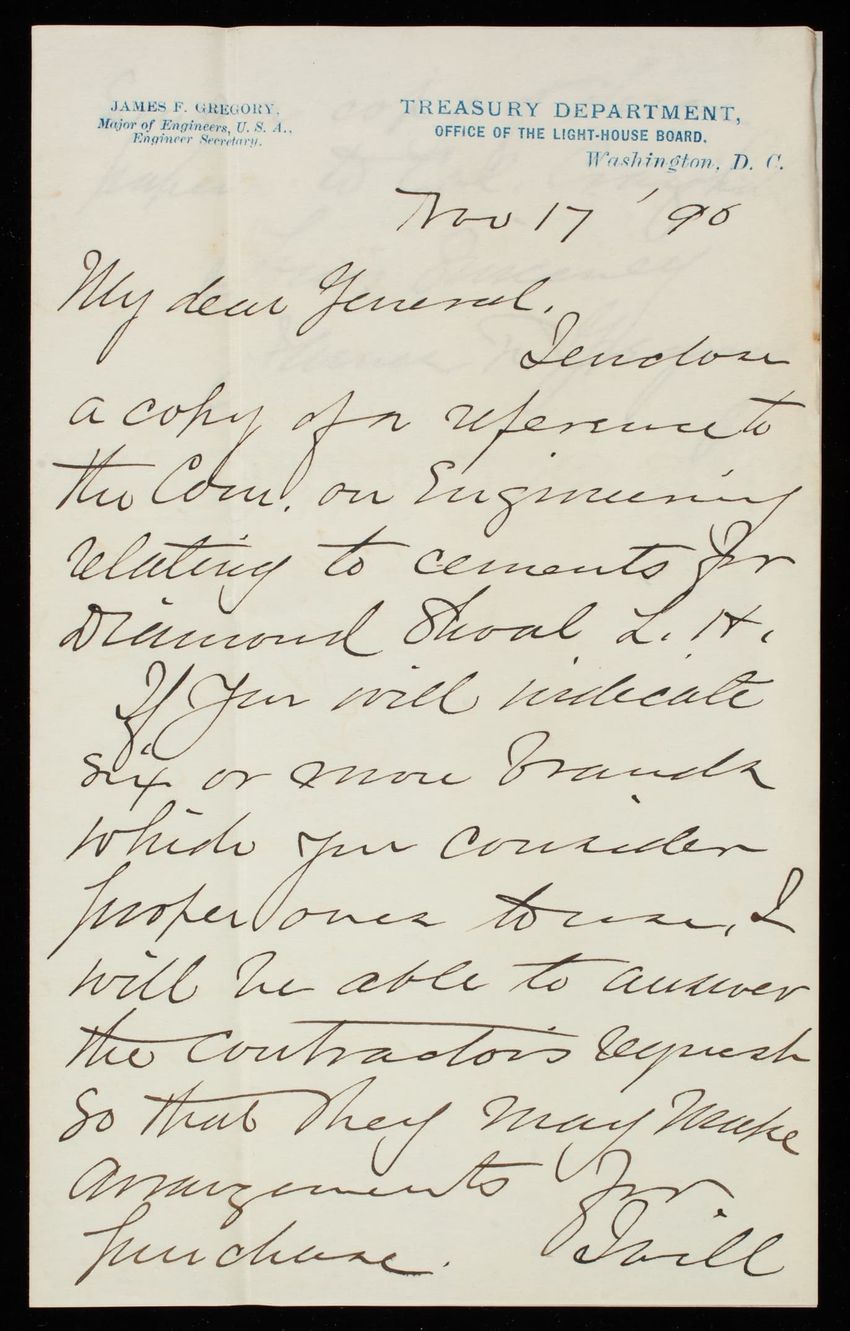 JAMES F. GREGORY,
Major of Engineers, U. S. A.,
Engineer Secretary.
TREASURY DEPARTMENT,
OFFICE OF THE LIGHT-HOUSE BOARD,
Washington, D. C.
Nov 17 '90
My dear General.
I enclose
a copy of a reference to
the Com. on Engineering
relating to cements for
Diamond Shoal L. H.
If you will indicate
six or more brands
which you consider
proper ones to use, I
will be able to answer
the contractors request
so that they may make
arrangements for
purchase. I will